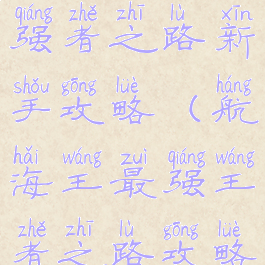 qiáng zhě zhī lù xīn
强者之路新
shǒu gōng lüè háng
手攻略（航
hǎi wáng zuì qiáng wáng
海王最强王
zhě zhī lù gōng lüè
者之路攻略